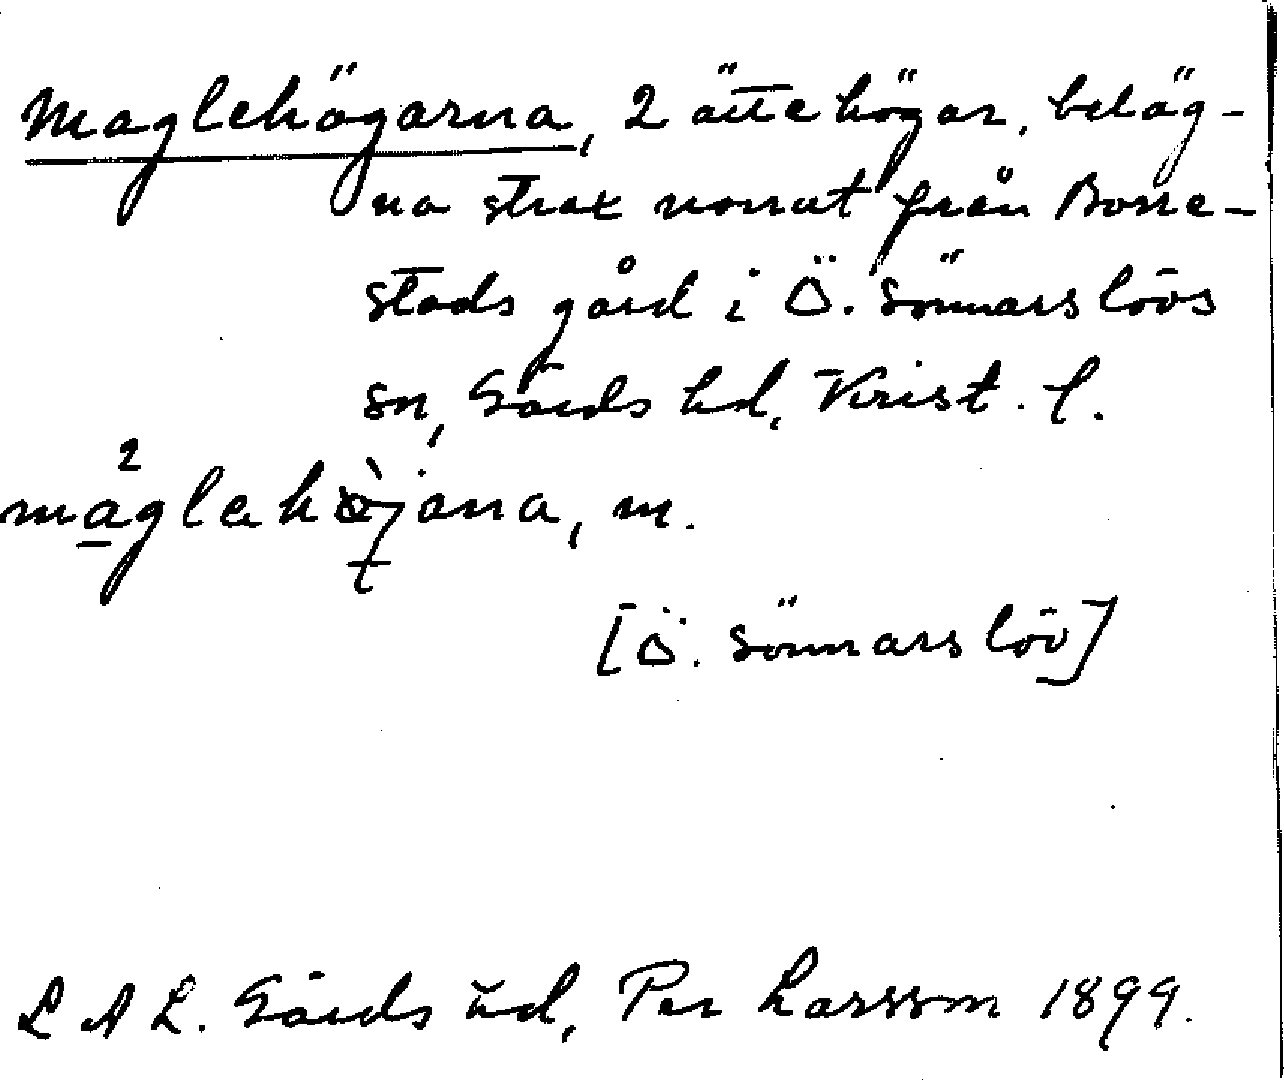 Maglehögarna, 2 ättehögar, beläg-
na strax norrut från Borre-
stads gård i Ö. Sönnarslövs
sn, Gärds hd, Krist. l.
maglahøjana, m.
[Ö. Sönnarslöv]
LAL. Gärds hd, Per Larsson 1899.